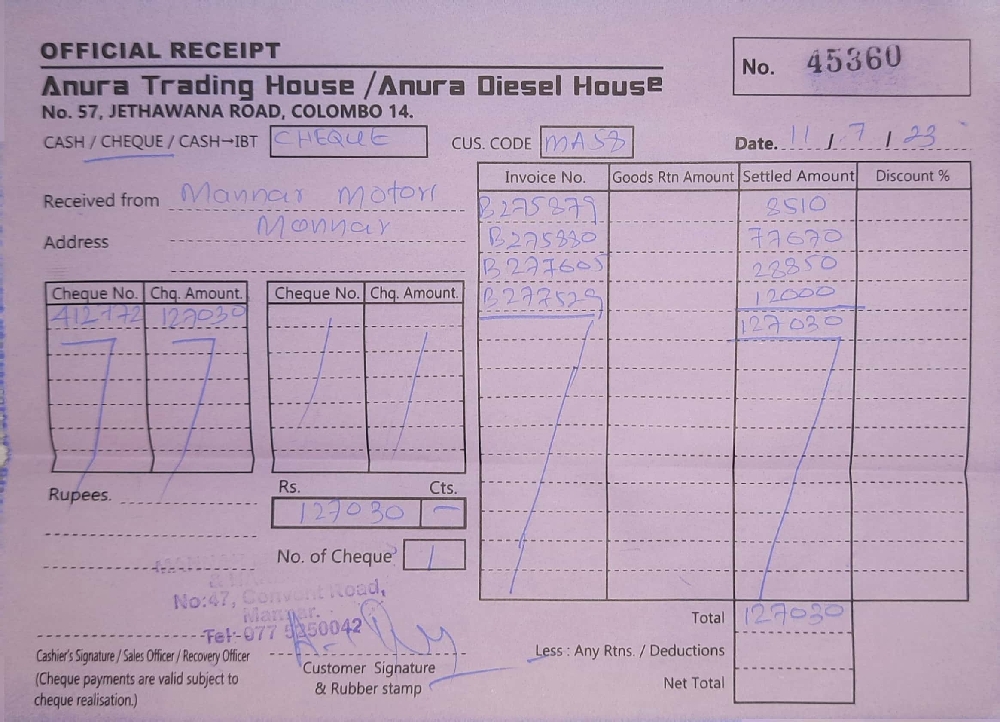 OFFICIAL RECEIPT
Anura Trading House / Anura Diesel House
No. 57, JETHAWANA ROAD, COLOMBO 14.
No. 45360
CASH / CHEQUE / CASH→IBT CHEQUE CUS. CODE MA58 Date. 11 / 7 / 23
Received from Mannar Motors
Address Mannar
Invoice No. Goods Rtn Amount Settled Amount Discount %
B275879 8510
B275880 77670
B277605 28850
B277529 12000
127030
Cheque No. Chq. Amount. Cheque No. Chq. Amount.
412772 127030
Rupees.
Rs. Cts.
127030 —
No. of Cheque 1
No:47, Convent Road,
Mannar.
Tel:-077 5250042
Cashier's Signature / Sales Officer / Recovery Officer
(Cheque payments are valid subject to
cheque realisation.)
Customer Signature
& Rubber stamp
Total 127030
Less : Any Rtns. / Deductions
Net Total